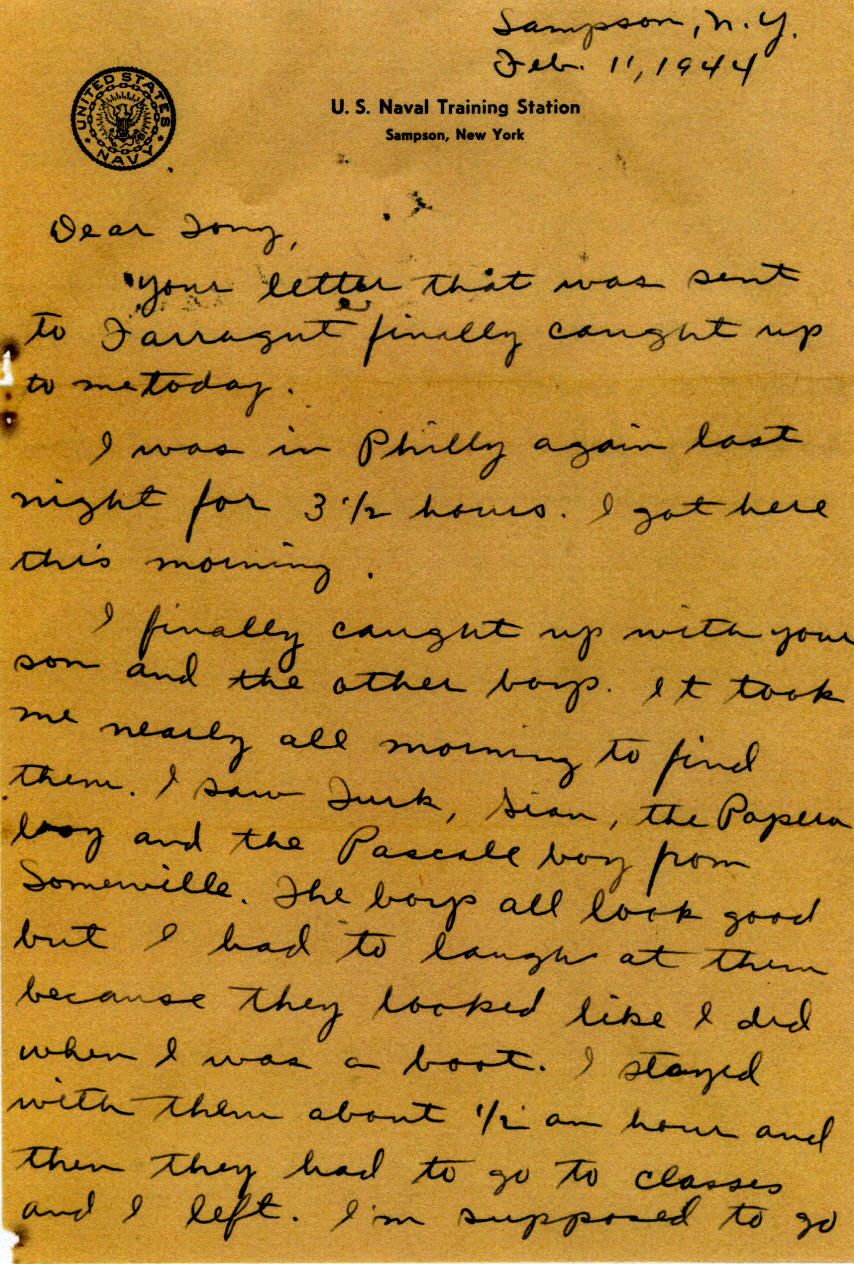 Sampson, N.Y.
Feb. 11, 1944
UNITED STATES NAVY
U. S. Naval Training Station
Sampson, New York
Dear Tony,
Your letter that was sent
to Farragut finally caught up
to me today.
I was in Philly again last
night for 3 1/2 hours. I got here
this morning.
I finally caught up with your
son and the other boys. It took
me nearly all morning to find
them. I saw Turk, the
boy and the Pascale boy from
Somerville. The boys all look good
but I had to laugh at them
because they looked like I did
when I was a boot. I stayed
with them about 1/2 an hour and
then they had to go to classes
and I left. I'm supposed to go